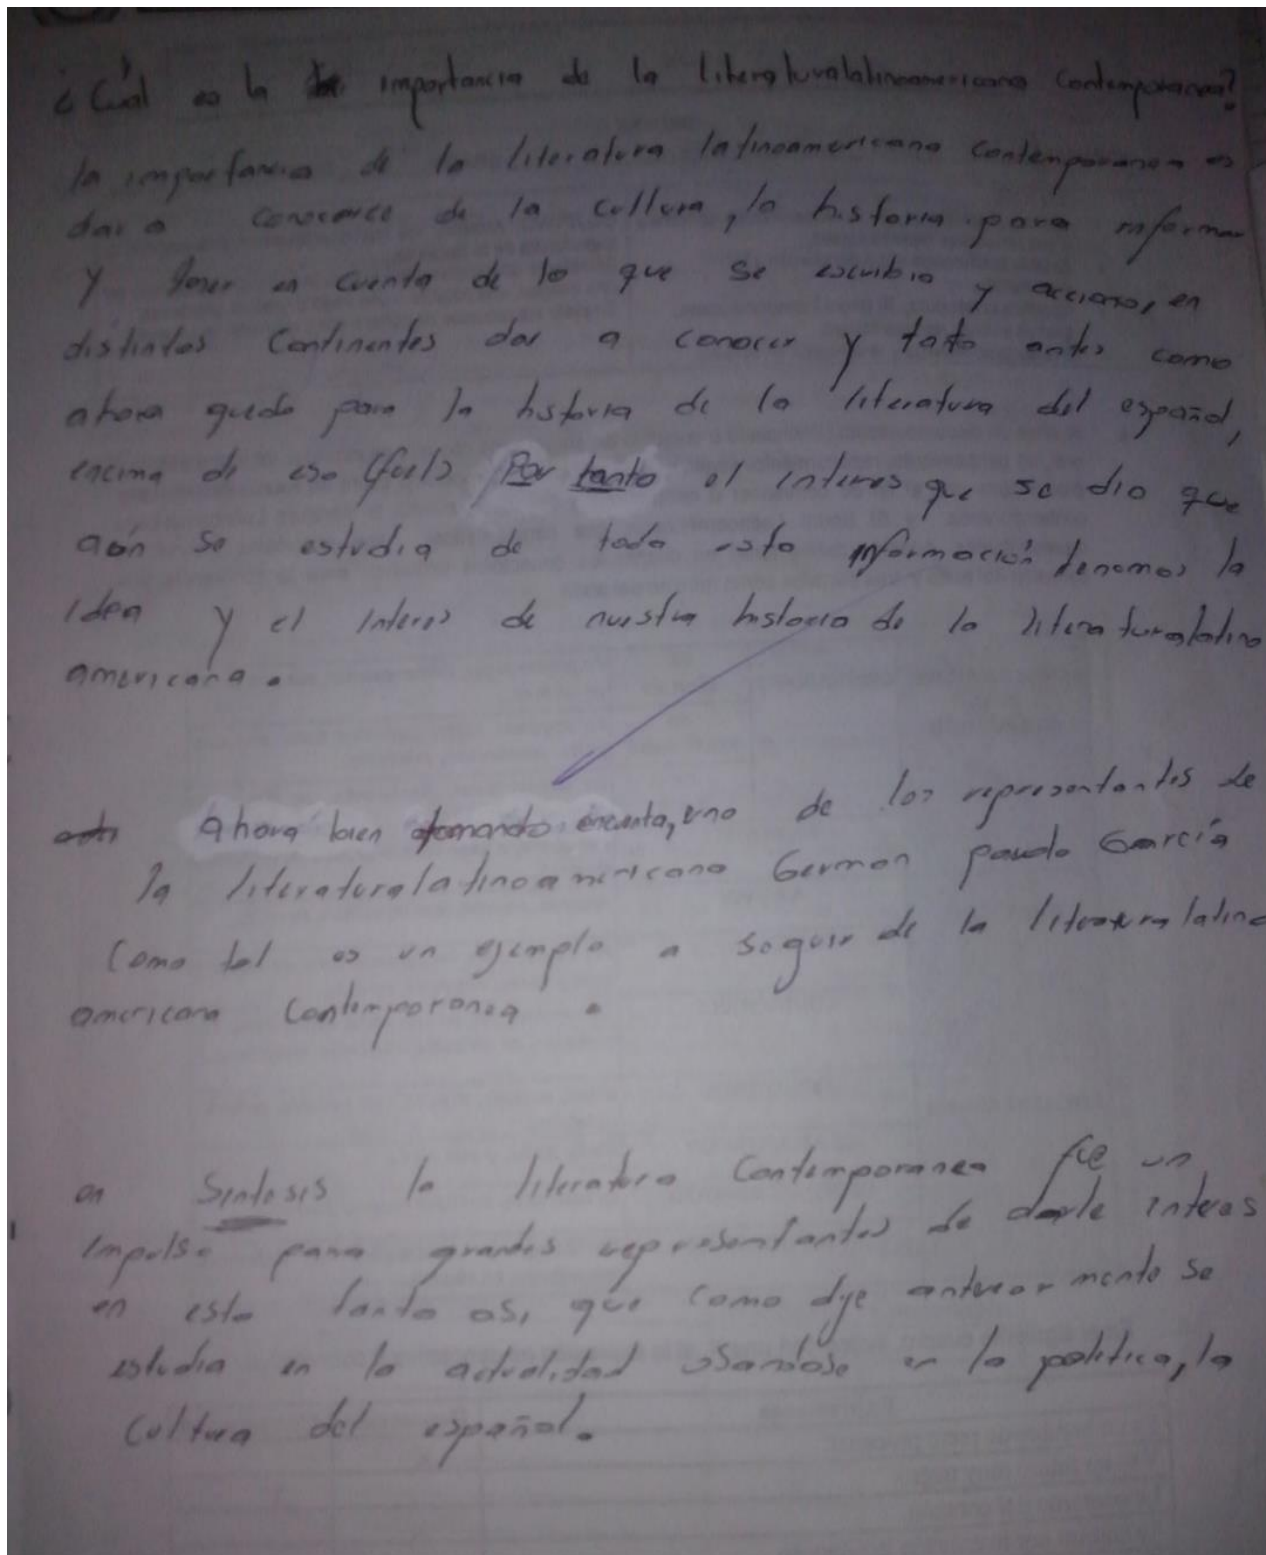 ¿Cuál es la importancia de la literaturalatinoamericana contemporanea?
la importancia de la literatura latinoamericana contemporanea es
dar a conocerce de la cultura, la historia para informar
y tener en cuenta de lo que se escribio y acciono, en
distintos continentes dar a conocer y tato antes como
ahora quedo para la historia de la literatura del español,
encima de eso Por tanto el interes que se dio que
aún se estudia de toda esta información tenemos la
idea y el interes de nuestra historia de la literaturalatino
americana.
Ahora bien tomando encuenta, uno de los representantes de
la literaturalatinoamericana German García
Como tal es un ejemplo a seguir de la literaturalatino
americana contemporanea.
en Sintesis la literatura contemporanea fue un
impulso para grandes representantes de darle interes
en esto tanto asi, que como dije anteriormente se
estudia en la actualidad usandose en la politica, la
cultura del español.